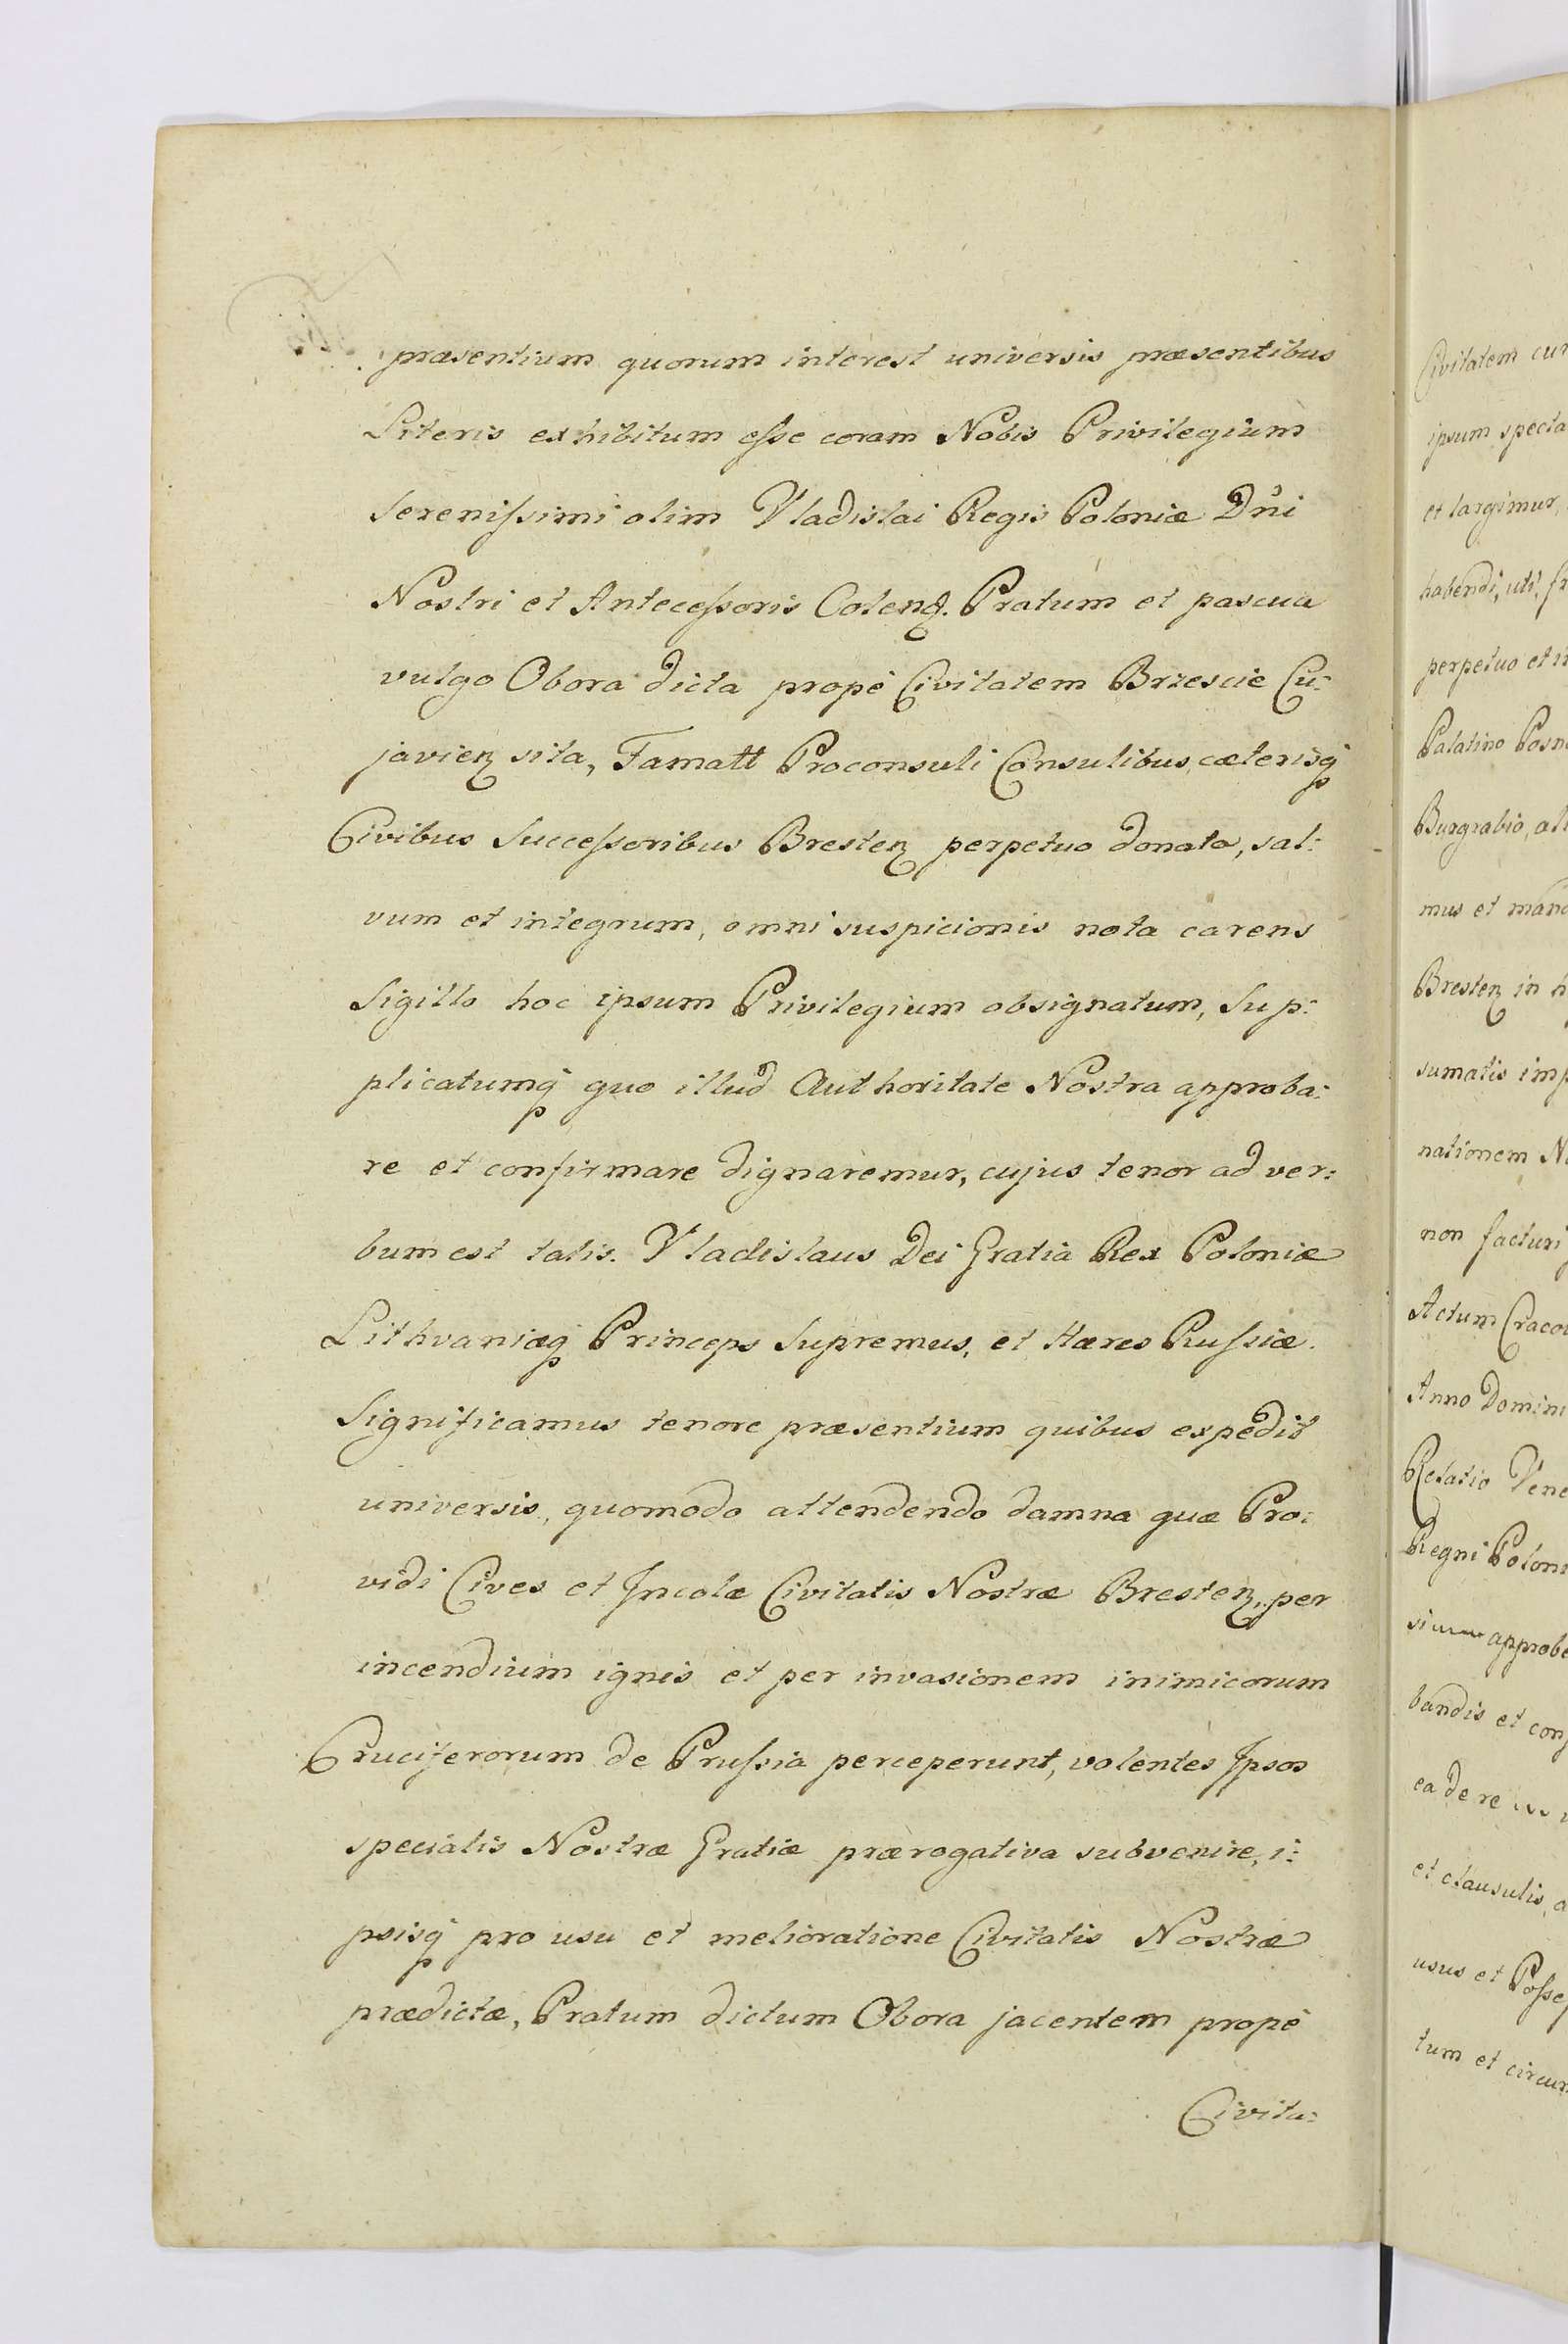 præsentium quorum interest universis præsentibus
Literis exhibitum eſse coram Nobis Privilegium
Sereniſsimi olim Vladislai Regis Poloniæ Dn̄i
Nostri et Anteceſsoris Colend. Pratum et pascua
vulgo Obora dicta propè Civitatem Brzescie Cu:
javien sita, Famatt Proconsuli Consulibus, cæterisq
Civibus Succeſsoribus Bresten perpetuo donata, sal:
vum et integrum, omni suspicionis nota carens
Sigillo hoc ipsum Privilegium obsignatum, Sup:
plicatumq quo illud Authoritate Nostra approba:
re et confirmare dignaremur, cujus tenor ad ver:
bum est talis. Vladislaus Dei Gratia Rex Poloniæ
Lithvaniæq Princeps Supremus, et Hæres Ruſsiæ.
Significamus tenore præsentium quibus expedit
universis, quomodo attendendo damna quæ Pro:
vidi Cives et Incolæ Civitatis Nostræ Bresten, per
incendium ignis et per invasionem inimicorum
Cruciferorum de Pruſsia perceperunt, volentes Ipsos
specialis Nostræ Gratiæ prærogativa subvenire, i:
psisq pro usu et melioratione Civitatis Nostræ
prædictæ, Pratum dictum Obora jacentem propè
Civita:
Civitatem
ipsum
et largimur,
habendi, uti,
perpetuo et
Palatino
Burgrabio,
mus et
Bresten in
sumatis
nationem
non facturi
Actum
Anno Domini
Relatio
Regni
bandis et
ea de re
et clausulis,
usus et
tum et